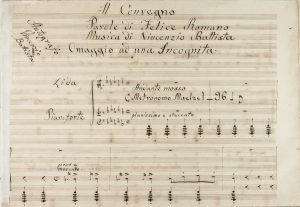 Il Convegno
Parole di Felice Romano
Musica di Vincenzio Battista
Omaggio ad una Incognita
Autografo
Vincenzio
Battista
Lida
Andante mosso
Metronomo Maelzel 96
Pianoforte
pianissimo e staccato